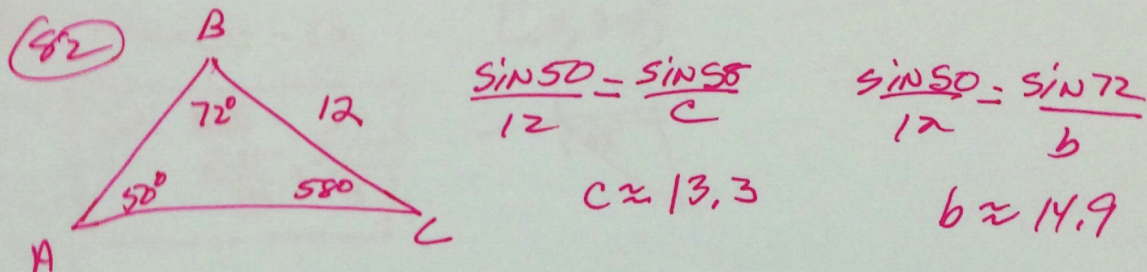 82
B
72° 12
50° 58°
A C
sin50/12 = sin58/c
c ≈ 13.3
sin50/12 = sin72/b
b ≈ 14.9